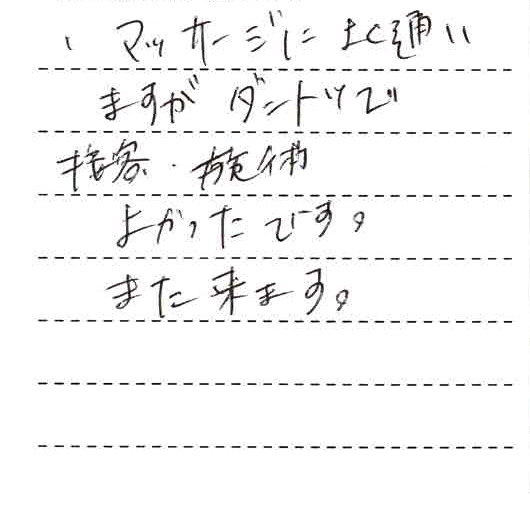 、マッサージによく通い
ますがダントツで
接客・施術
よかったです。
また来ます。